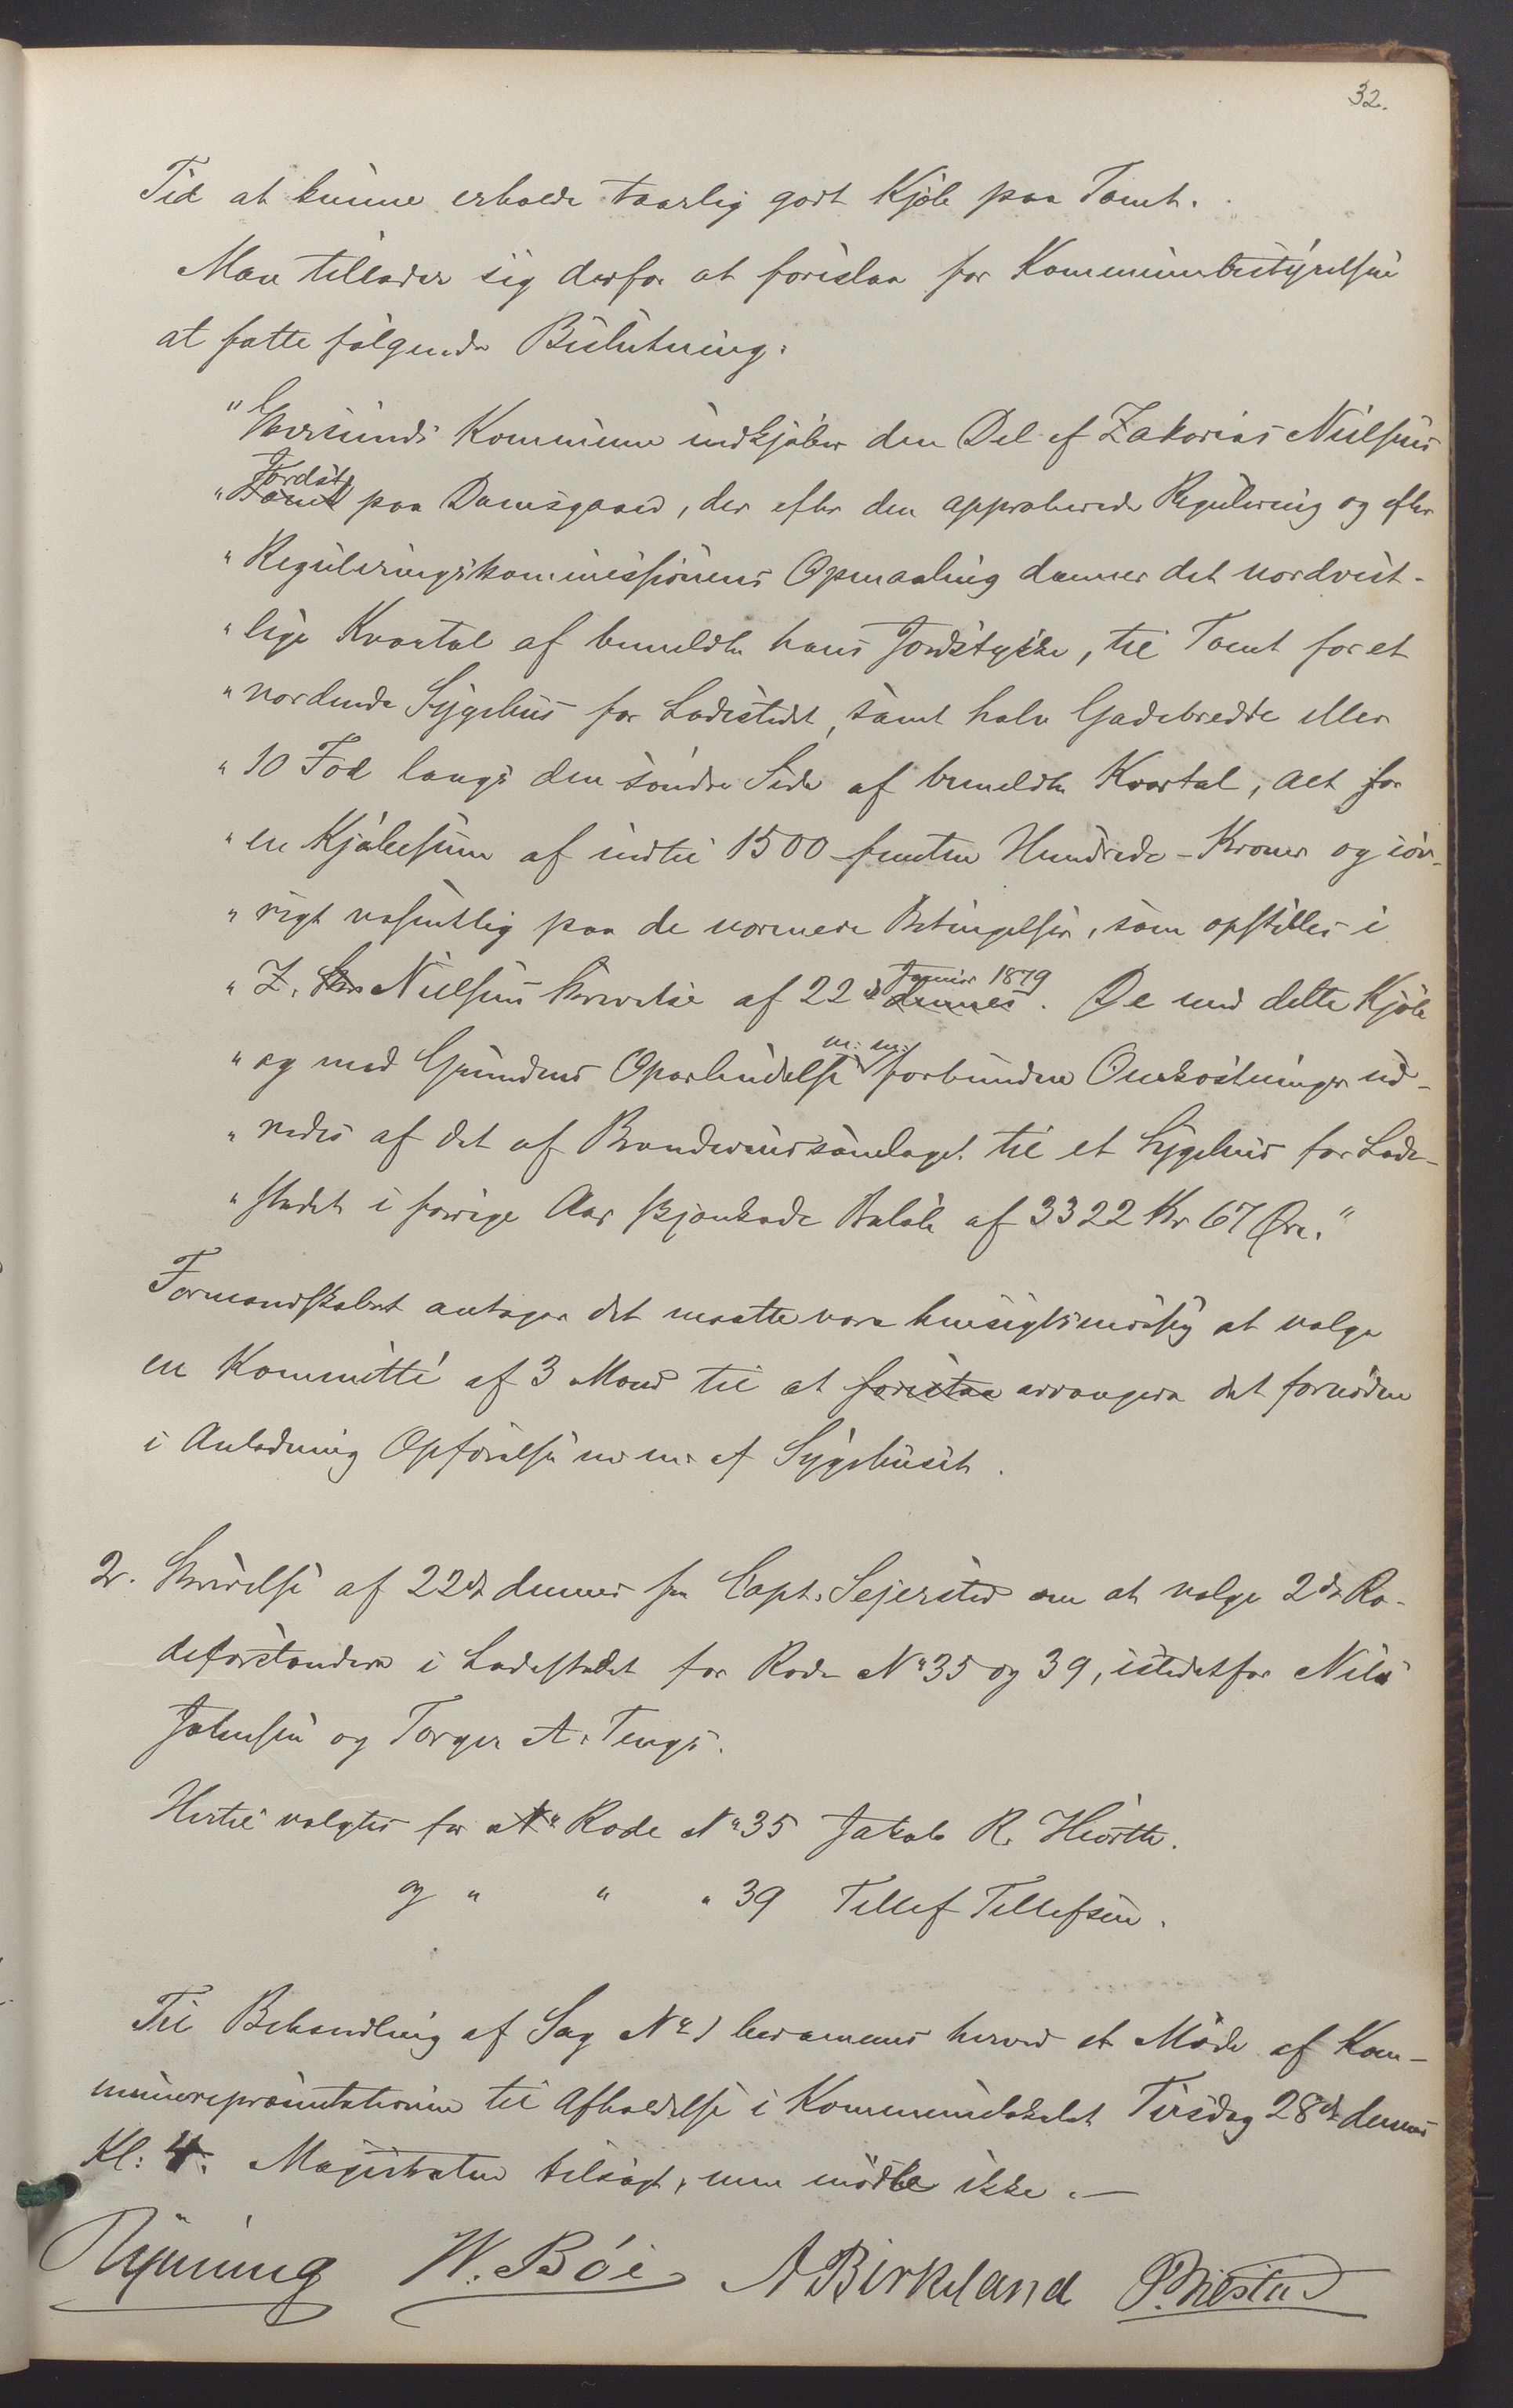 32.
Tid at kunne erholde taarlig godt Kjøb paa Tomt.
Man tillader sig derfor at foreslaa for Kommunebestyrelsen
at fatte følgende Beslutning:
"Egersunds Kommune indkjøber den Del af Zakarias Nielsens
Jordst
"Tomt paa Damsgaard, der efter den approberede Regulering og efter
"Reguleringskommissionens Opmaaling danner det nordvest-
"lige Kvartal af bemeldte hans Jordstykke, til Tomt for et
"vordende Sygehus for Ladestedet, samt halv Gadebredde eller
"10 Fod langs den søndre Side af bemeldte Kvartal, alt for
"en Kjøbesum af indtil 1500 femten Hundrede - Kroner og iøv-
"rigt væsentlig paa de nærmere Betingelser, som opstilles i
Januar 1879
"Z. Nielsens Skrivelse af 22de dennes. De med dette Kjøb
m: m:
"og med Grundens Oparbeidelse forbundne Omkostninger ud-
"redes af det af Brændevinssamlaget til et Sygehus for Lade-
"stedet i forrige Aar skjænkede Beløb af 3322 Kr 67 Øre."
Formandskabet antager det maatte være hensigtsmæssig at vælge
en Kommitté af 3 Mænd til at forestaa arrangere det fornødne
i Anledning Opførelse m. m. af Sygehuset.
2. Skrivelse af 22de dennes fra Capt. Sejersted om at vælge 2de Ro-
deforstandere i Ladestedet for Rode No 35 og 39, istedetfor Nils
Johnsen og Torger A. Tengs.
Hertil valgtes for No Rode No 35 Jakob R. Hiorth.
og " " " 39 Tellef Tellefsen.
Til Behandling af Sag No 1 berammes herved et Møde af Kom-
munerepræsentationen til Afholdelse i Kommunelokalet Tirsdag 28de dennes
Kl: 4. Magistraten tilsagt, men mødte ikke.—
W. Böe A Birkeland